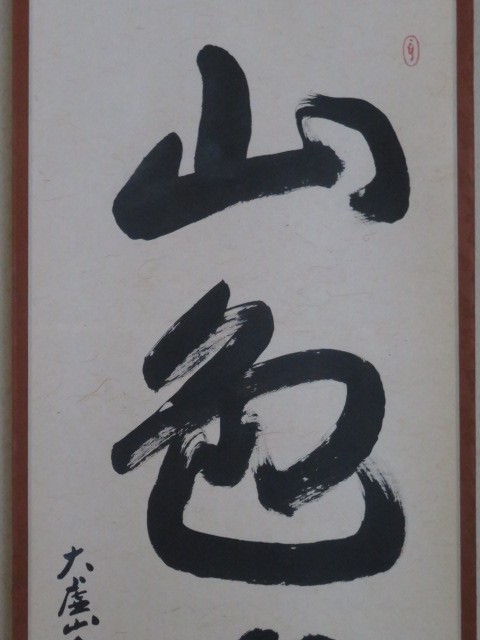 山色
大虚山